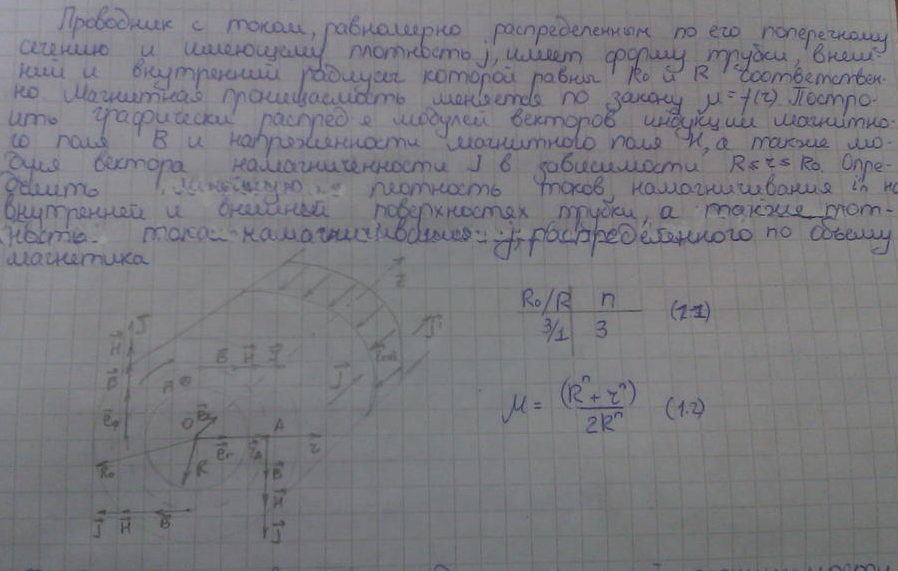 Проводник с током, равномерно распределенным по его поперечному
сечению и имеющему плотность j, имеет форму трубки, внеш-
ний и внутренний радиусы которой равны R₀ и R соответствен-
но. Магнитная проницаемость меняется по закону μ=f(r). Постро-
ить графически распред-е модулей векторов индукции магнитно-
го поля B и напряженности магнитного поля H, а также мо-
дуля вектора намагниченности J в зависимости R≤r≤R₀. Опре-
делить линейную плотность токов намагничивания iн на
внутренней и внешней поверхностях трубки, а также плот-
ность тока намагничивания распределенного по объему
магнетика
R₀/R n (1.1)
3/1 3
μ = (Rⁿ + rⁿ) / 2Rⁿ (1.2)
J
H
B
B H J
O
A
R
r
R₀
B
H
J
J H B